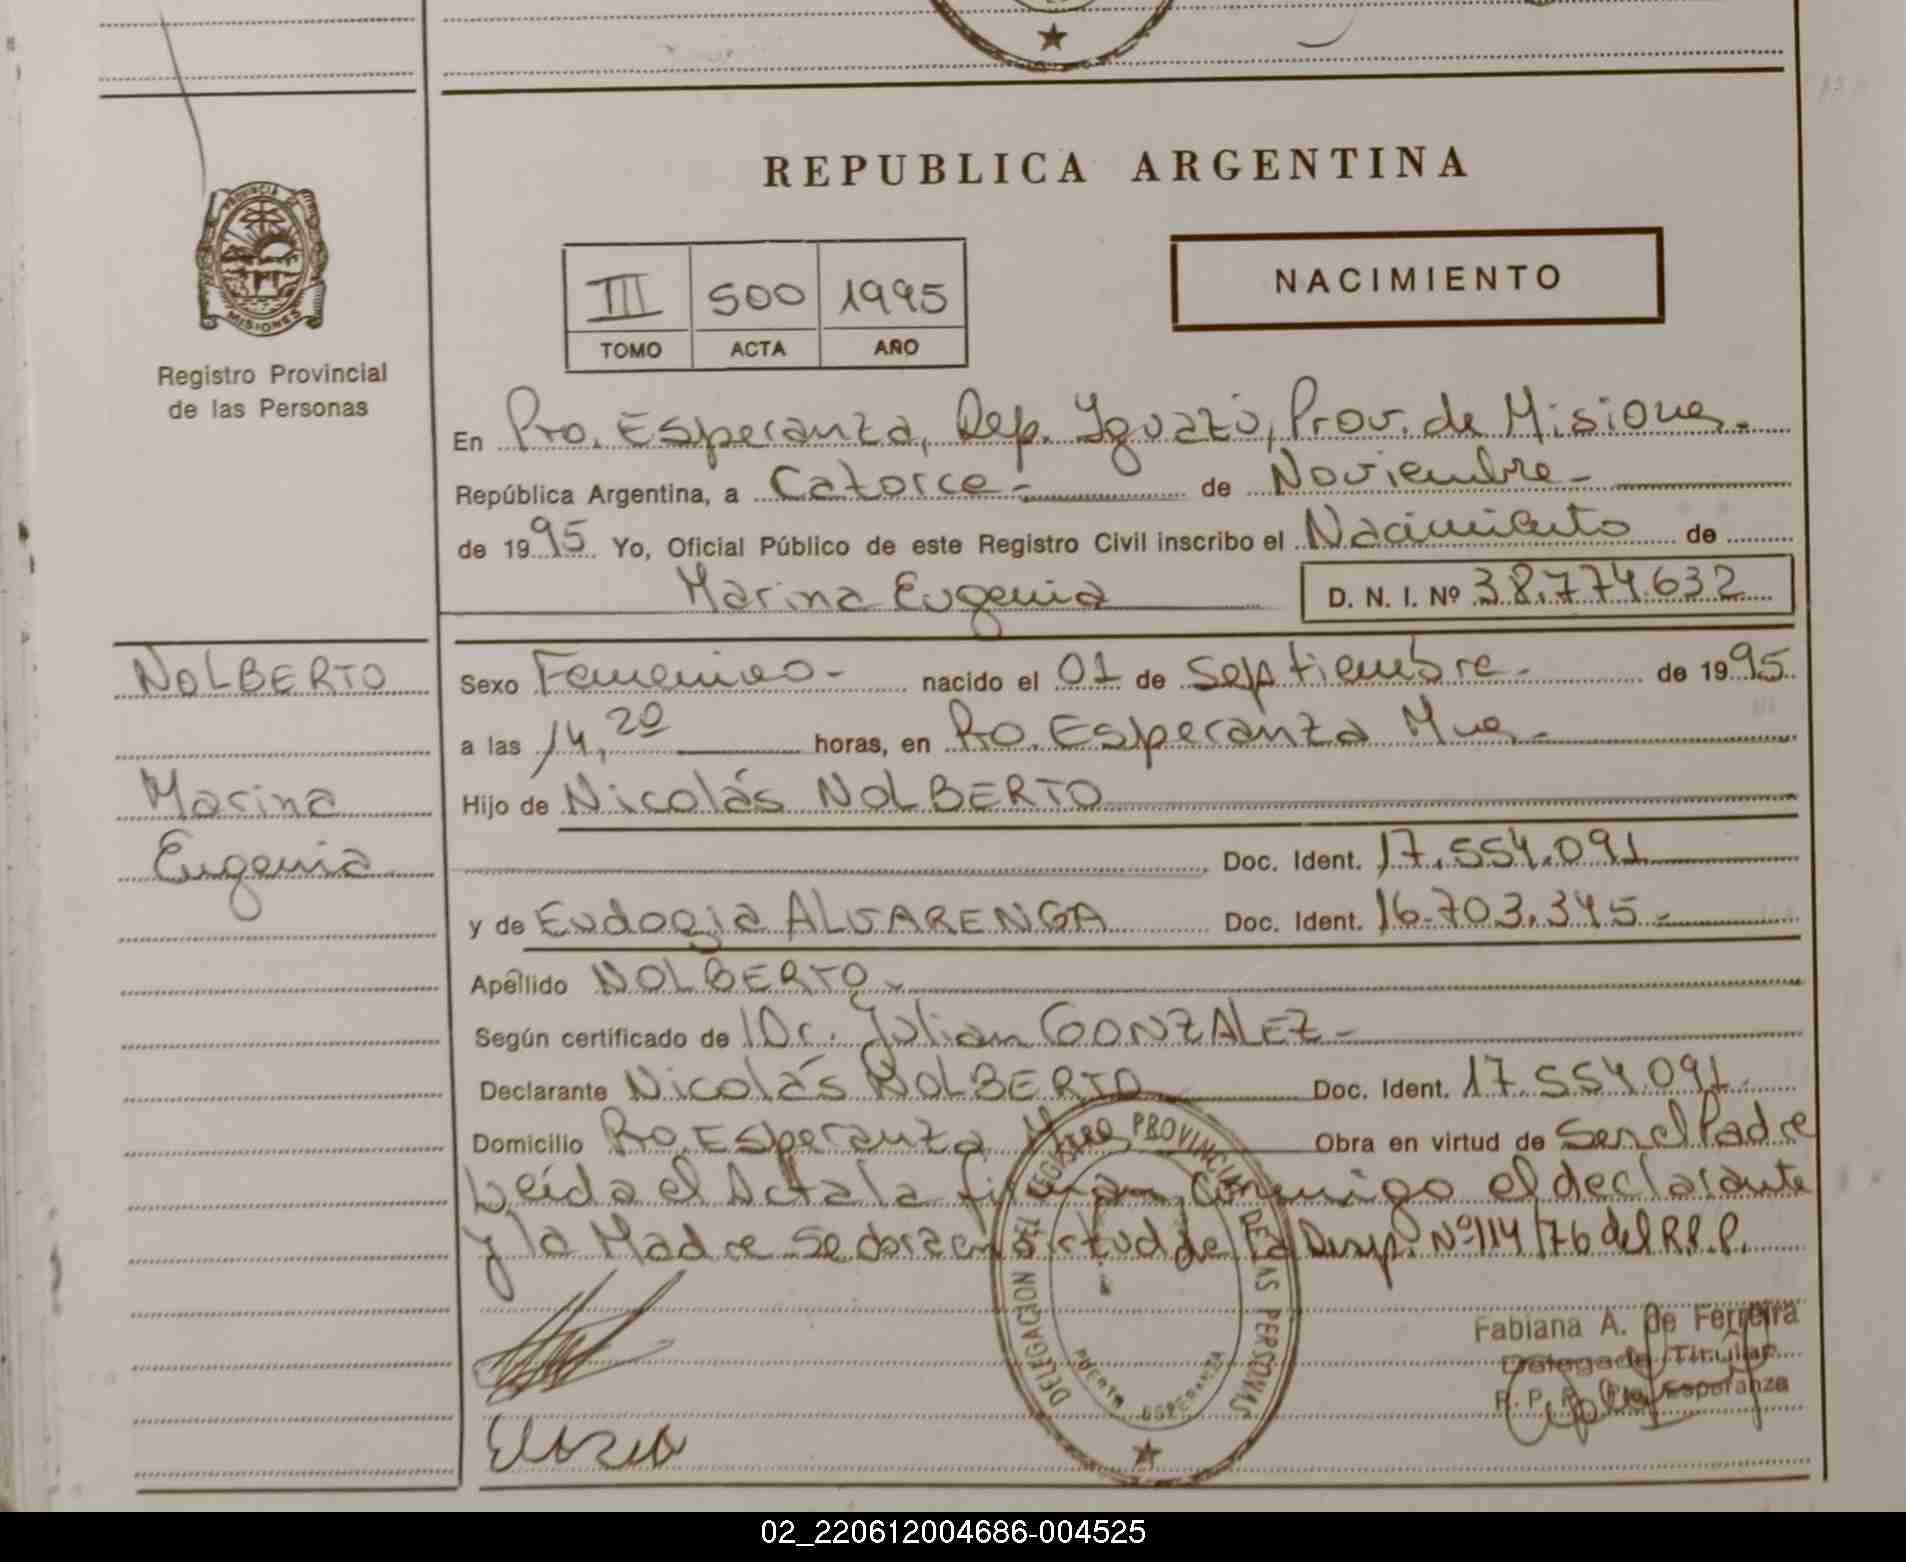 REPUBLICA ARGENTINA
PROVINCIA DE
MISIONES
Registro Provincial
de las Personas
III 500 1995
TOMO ACTA AÑO
NACIMIENTO
En Pto. Esperanza, Dep. Iguazú, Prov. de Misiones.-
República Argentina, a Catorce.- de Noviembre-
de 1995 Yo, Oficial Público de este Registro Civil inscribo el Nacimiento de
Marina Eugenia D. N. I. Nº 38.774.632
NOLBERTO
Marina
Eugenia
Sexo Femenino- nacido el 01 de Septiembre- de 1995
a las 14,20 horas, en Pto. Esperanza Mnes.-
Hijo de Nicolás NOLBERTO
Doc. Ident. 17.554.091
y de Eudogia ALVARENGA Doc. Ident. 16.703.345.-
Apellido NOLBERTO.-
Según certificado de Dr. Julian GONZALEZ-
Declarante Nicolás NOLBERTO Doc. Ident. 17.554.091.
Domicilio Pto. Esperanza Mnes Obra en virtud de Ser el Padre
Leída el Acta la firman conmigo el declarante
y la Madre Nº 114/76 del R.P.P.
DELEGACION DEL REGISTRO PROVINCIAL DE LAS PERSONAS
PUERTO ESPERANZA
Fabiana A. de Ferreira
Delegada Titular
R. P. P. Pto. Esperanza
02_220612004686-004525